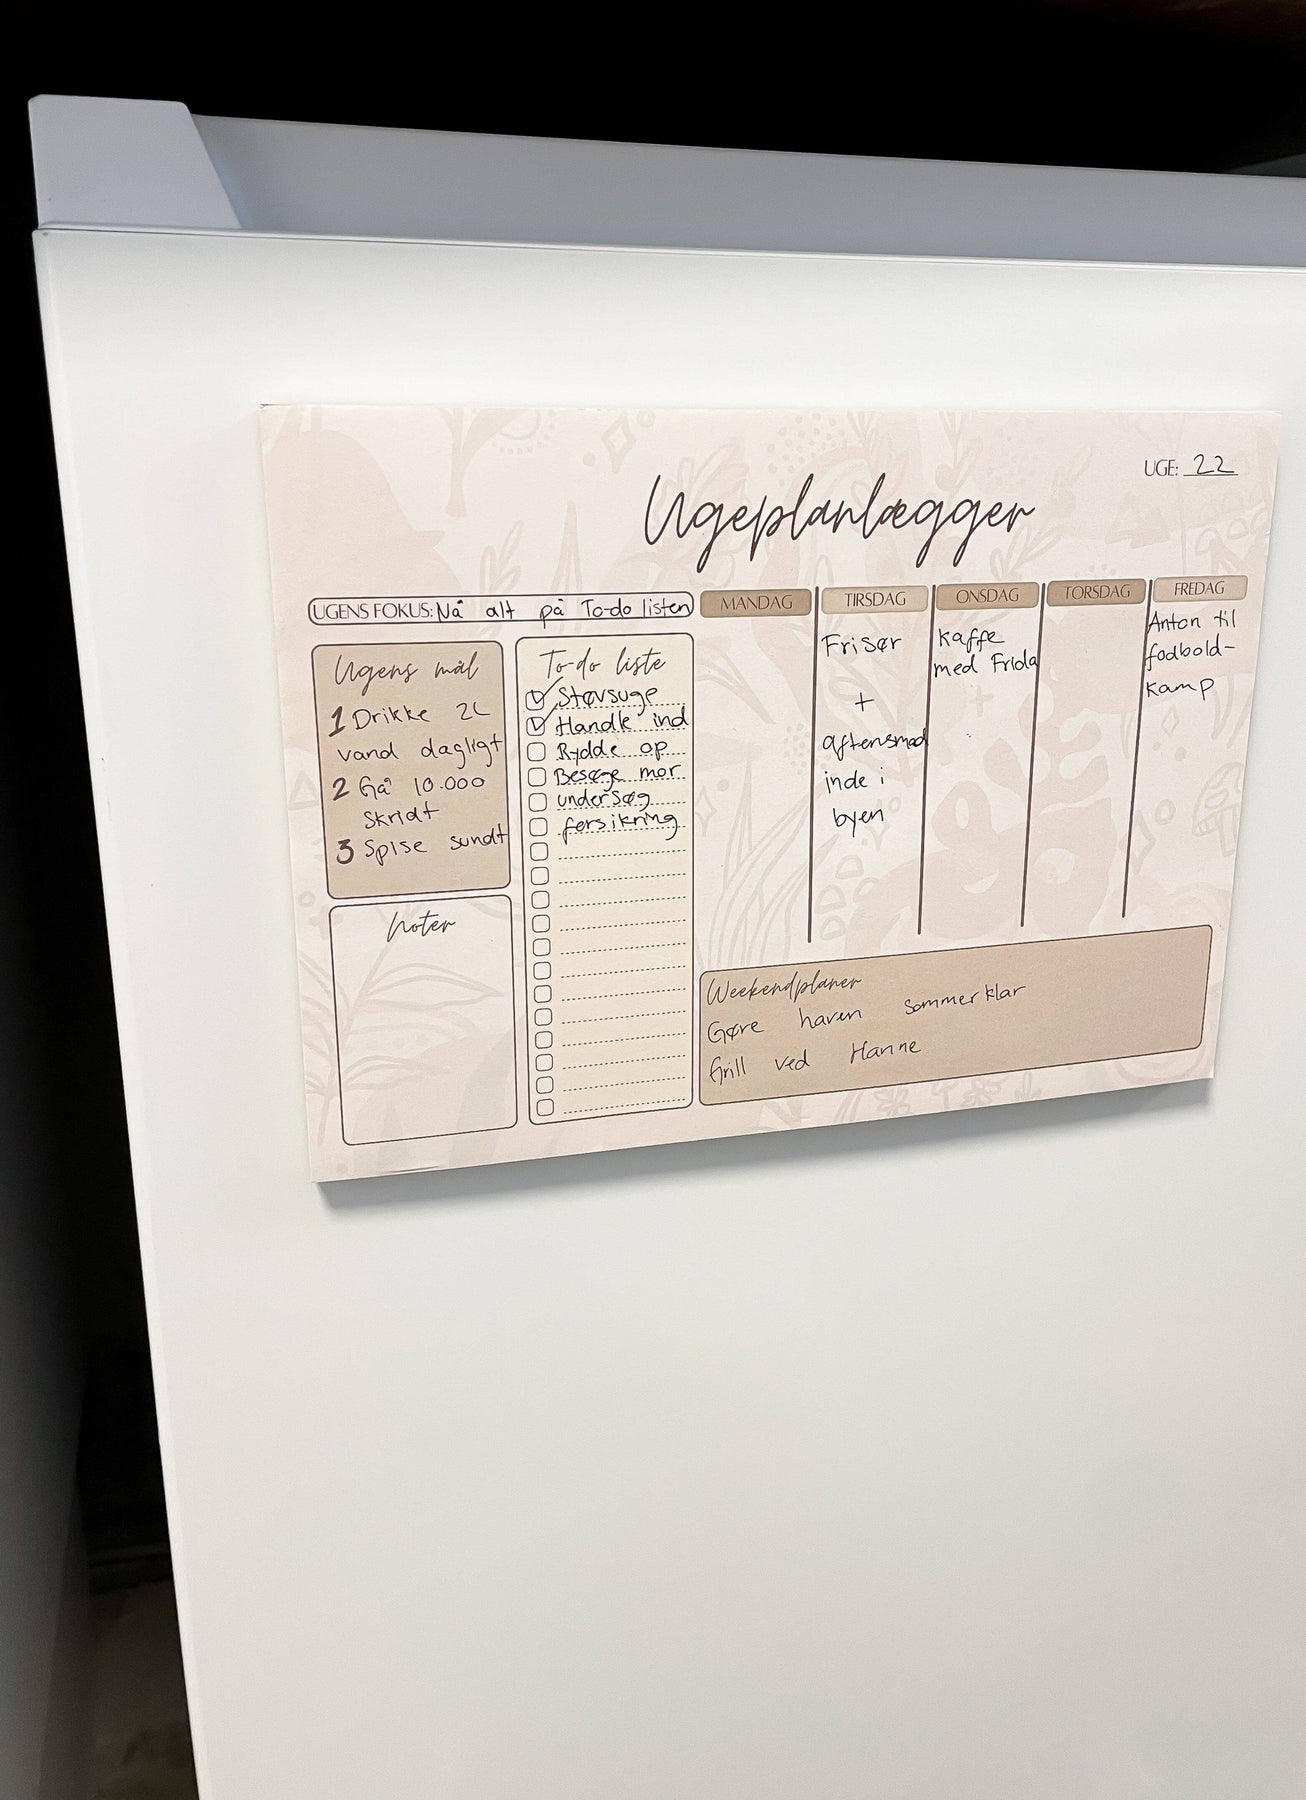 UGE: 22
Ugeplanlægger
UGENS FOKUS: Nå alt på To-do listen
Ugens mål
1 Drikke 2L
vand dagligt
2 Gå 10.000
skridt
3 Spise sundt
Noter
To-do liste
Støvsuge
Handle ind
Rydde op
Besøge mor
undersøg
forsikring
MANDAG
TIRSDAG
Frisør
+
aftensmad
inde i
byen
ONSDAG
Kaffe
med Frida
TORSDAG
FREDAG
Anton til
fodbold-
kamp
Weekendplaner
Gøre haven sommerklar
Grill ved Hanne